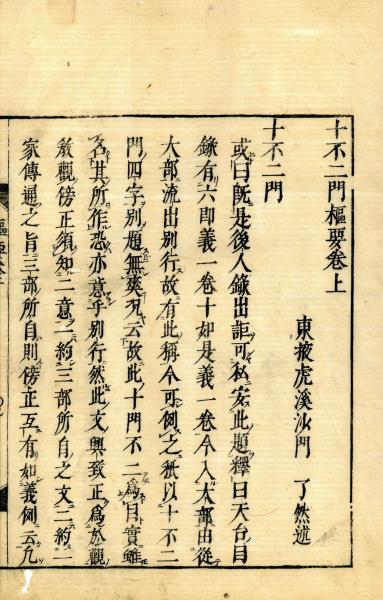 十不二門樞要卷上
東掖虎溪沙門　了然述
十不二門
或曰旣是後人錄出詎可私安此題釋曰天台目
錄有六卽義一卷十如是義一卷今入大部由從
大部流出別行故有此稱今可例之秖以十不二
門四字別題無爽況云故此十門不二爲目實雖
名其所作恐亦意乎別行然此文興致正爲於觀
敎觀傍正須知二意一約三部所自之文二約一
家傳通之旨三部所自則傍正互有如義例云凡